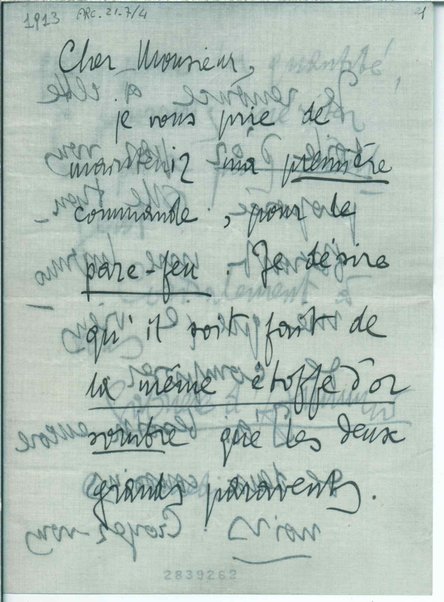 1913 ARC. 21.7/4
Cher Monsieur,
je vous prie de
maintenir ma première
commande, pour le
pare-feu. Je désire
qu'il soit fait de
la même étoffe d'or
sombre que les deux
grands paravents.
2839262